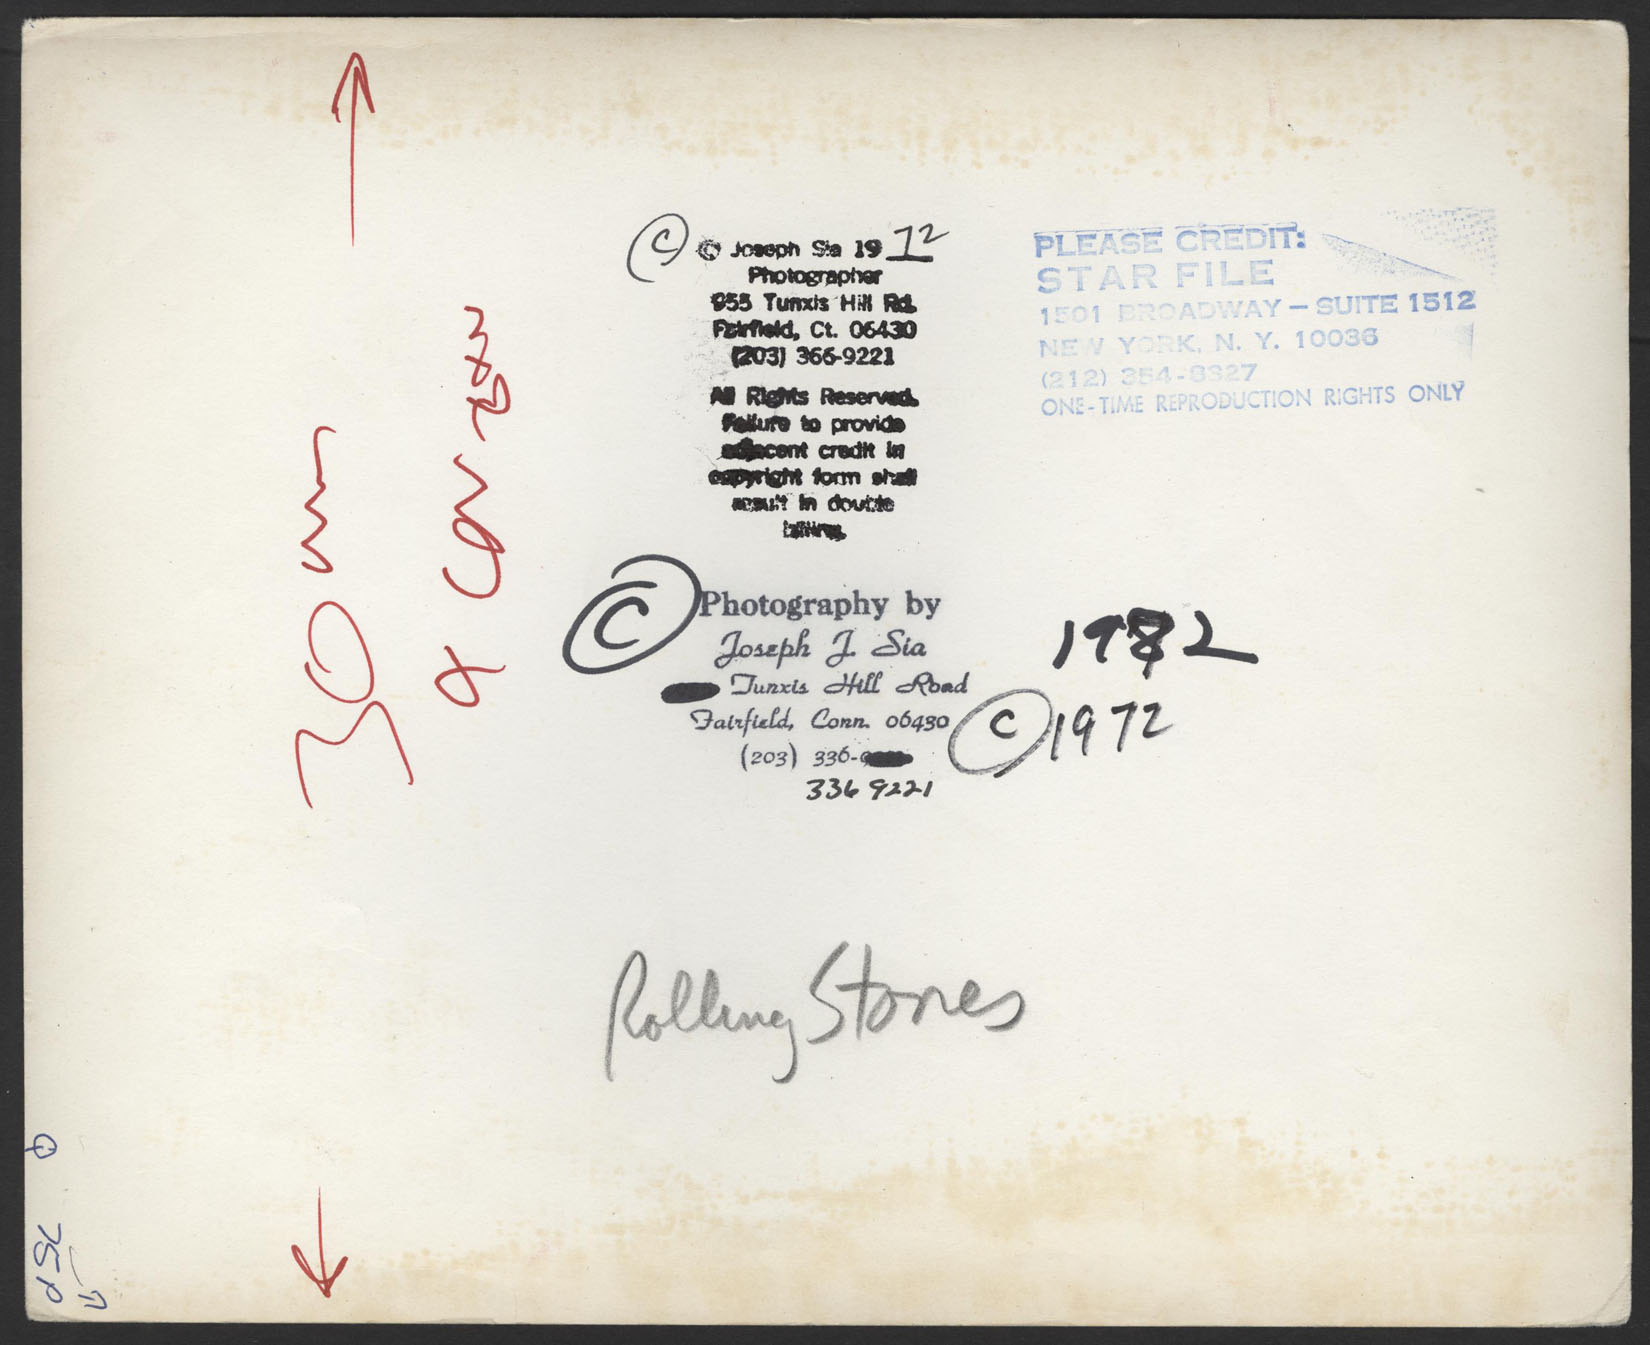 © © Joseph Sia 1972
Photographer
955 Tunxis Hill Rd.
Fairfield, Ct. 06430
(203) 366-9221
All Rights Reserved.
Failure to provide
adjacent credit in
copyright form shall
result in double
billing.
PLEASE CREDIT:
STAR FILE
1501 BROADWAY – SUITE 1512
NEW YORK, N. Y. 10036
(212) 354-8327
ONE-TIME REPRODUCTION RIGHTS ONLY
© Photography by
Joseph J. Sia
Tunxis Hill Road
Fairfield, Conn. 06430
(203) 336-
336 9221
1972
© 1972
Rolling Stones